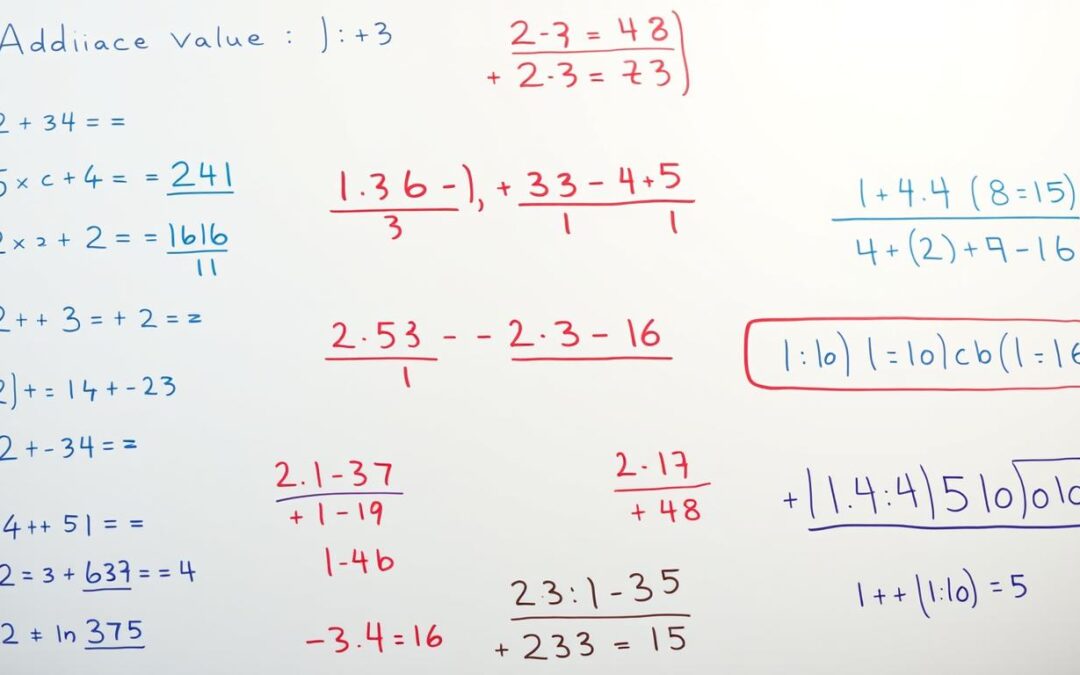 Addiiace value : ) : +3
2 + 34 = =
5 x c + 4 = = 241
2 x 2 + 2 = = 1616
11
2 + + 3 = + 2 = =
2) + = 14 + - 23
2 + - 34 = =
4 ++ 51 = =
2 = 3 + 637 = = 4
2 ≠ ln 375
2 - 3 = 48)
+ 2 · 3 = 73)
1.36 - ), + 33 - 4 + 5
3 1 1
2 · 53 - - 2 · 3 - 16
1
2.1 - 37
+ 1 - 19
1 - 46
- 3.4 = 16
2 · 17
+ 48
23 : 1 - 35
+ 233 = 15
1 + 4.4 (8 = 15)
4 + (2) + 9 - 16
1 : 10) 1 = 10) cb (1 = 16
+ (1.4 : 4) 5 10) 010
1 + + (1:10) = 5